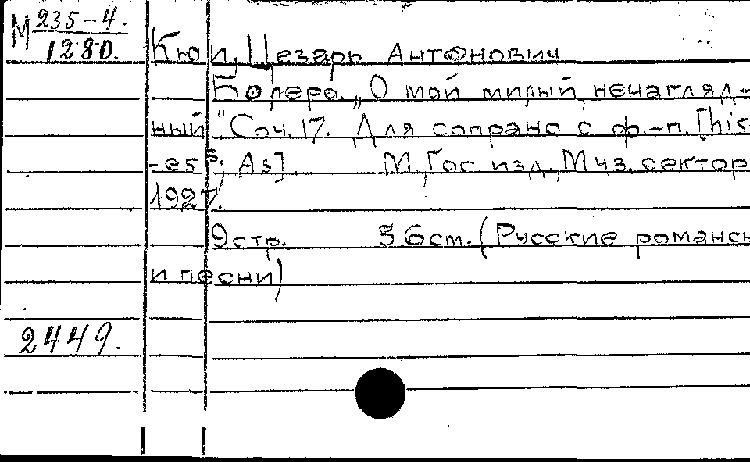 М 235-4.
1280.
Кюи, Цезарь Антонович
Болеро. „О мой милый, ненагляд-
ный" Соч. 17. Для сопрано с ф.-п. [his
-es³; As]. М., Гос. изд., Муз. сектор
1927.
9 стр. 36 см. (Русские романсы
и песни)
2449.